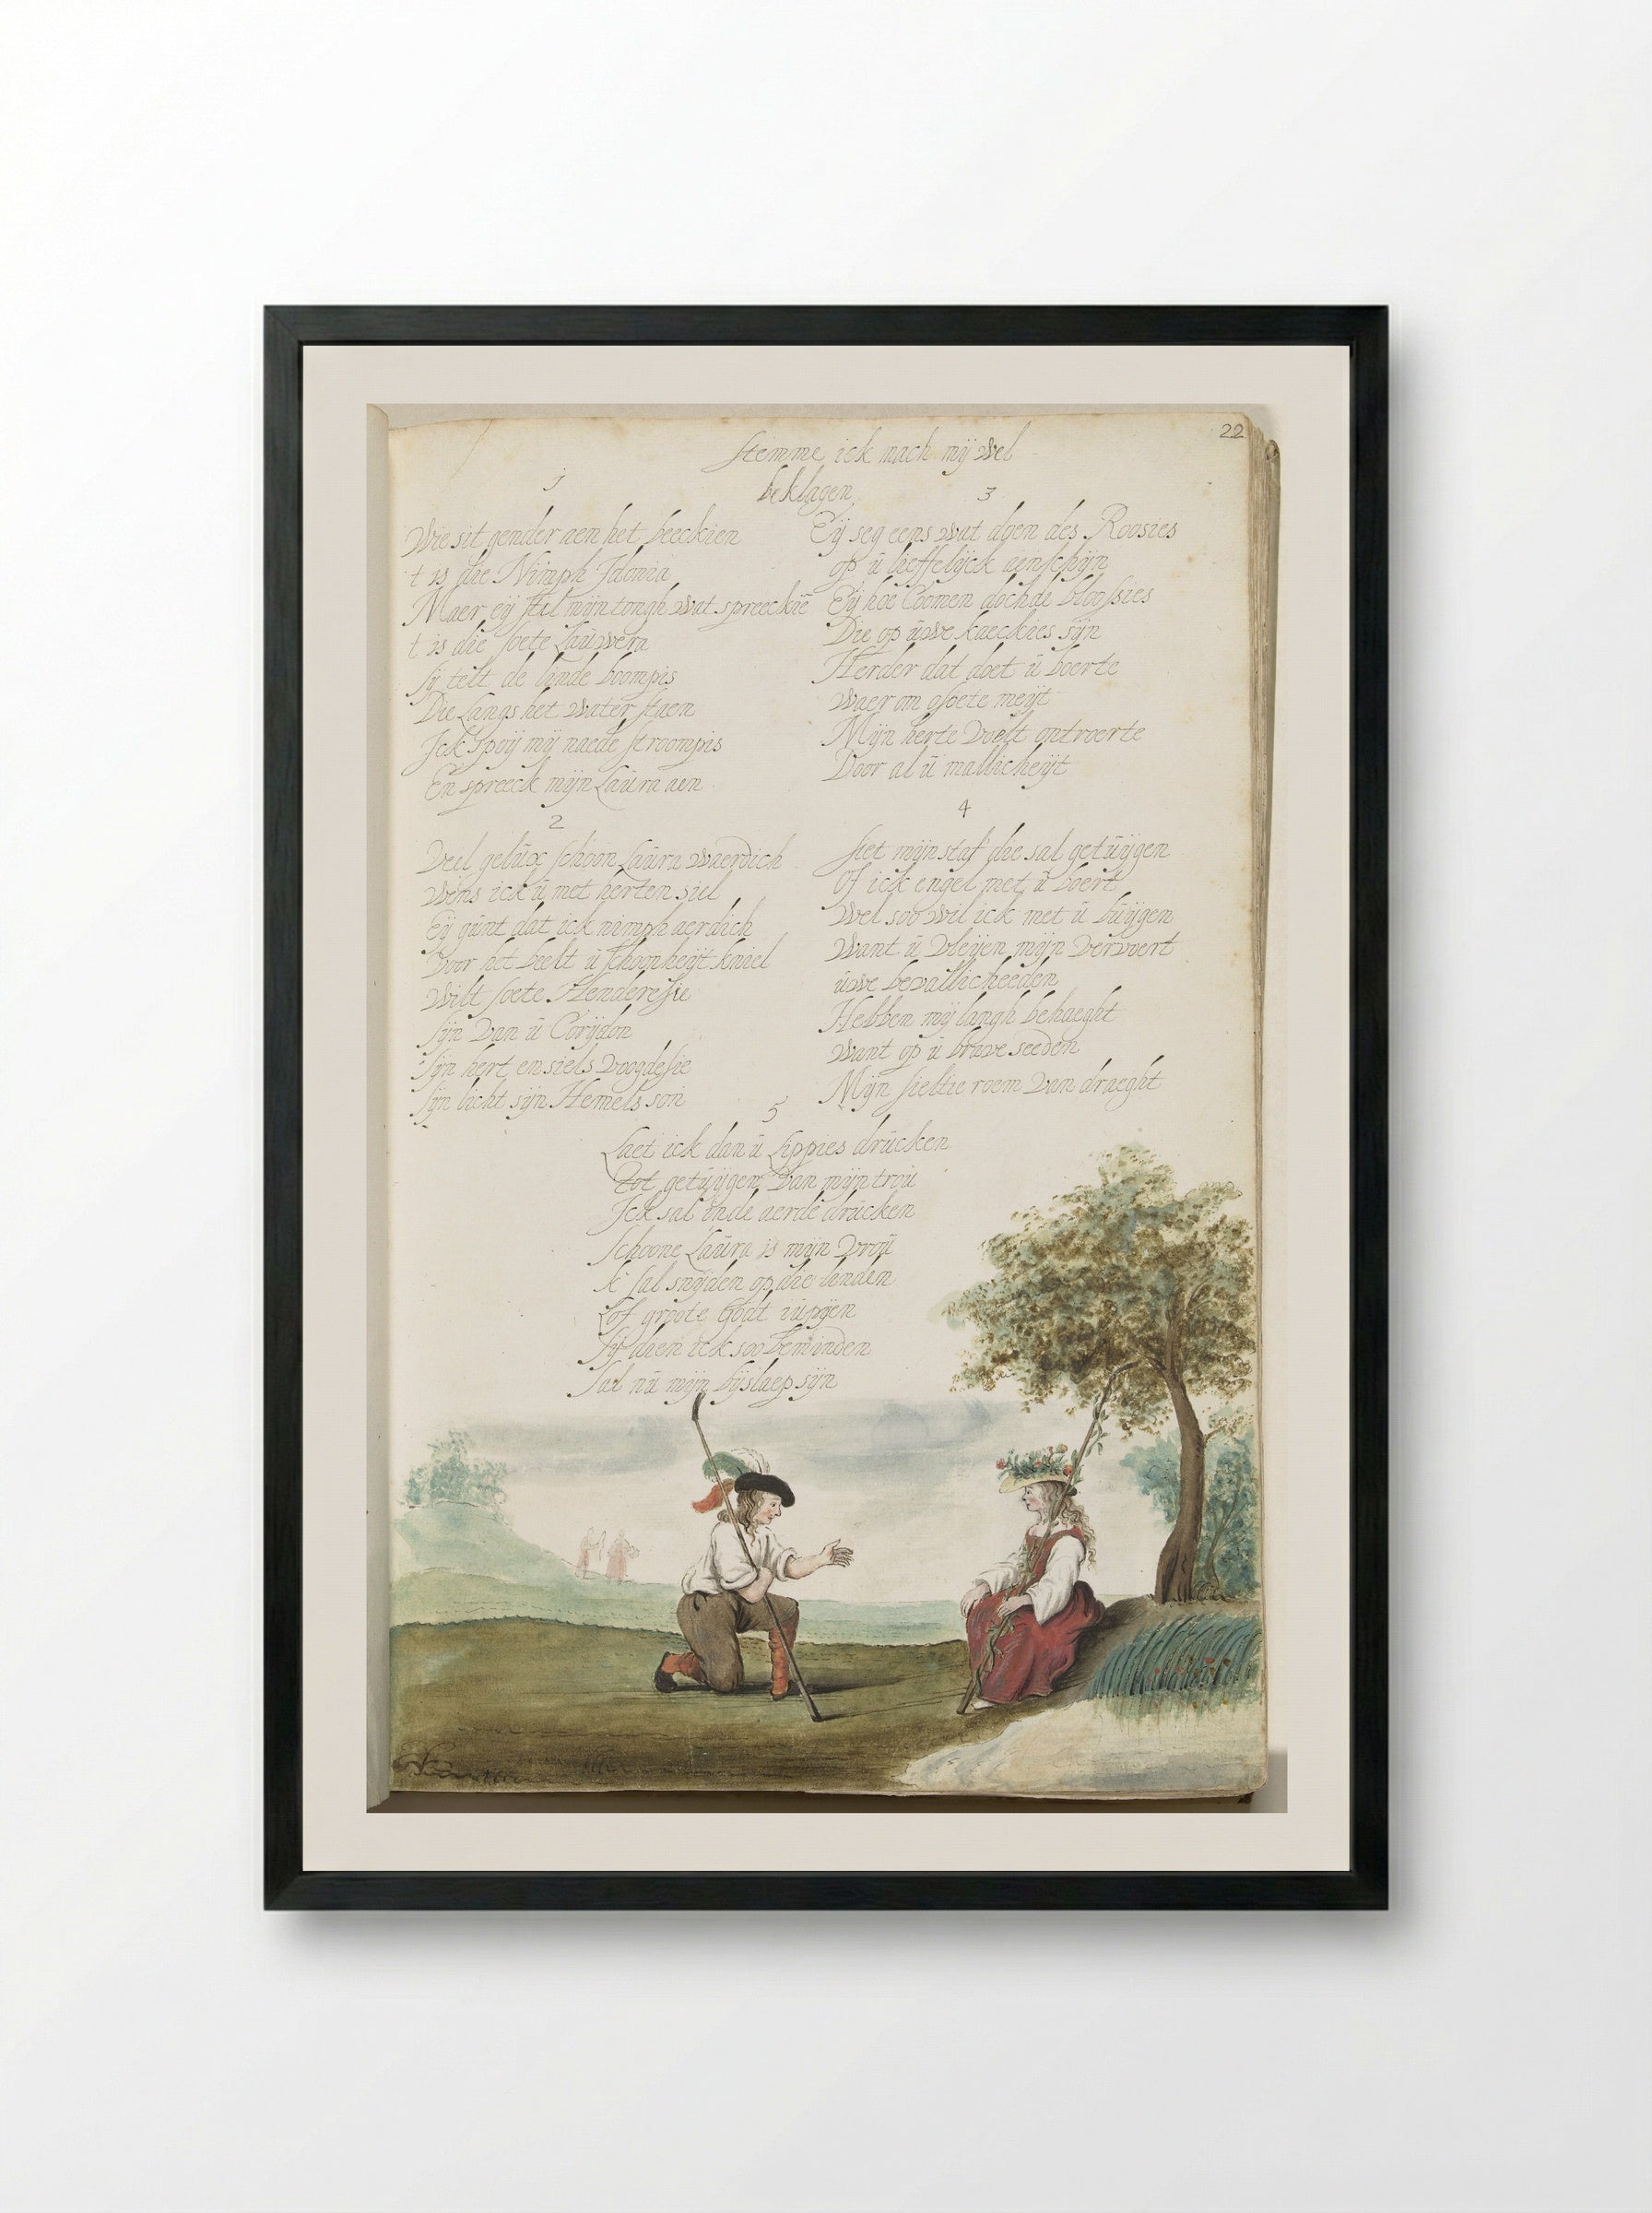 22
Stemme ick mach mij wel
beklagen
1
Wie sit gender aen het beeckien
t is die Nimph Idonia
Maer eij stil mijn tongh wat spreeckie
t is die soete Lauwera
sij telt de linde boompis
Die Langs het water staen
Ick spoij mij nae de stroompis
En spreeck mijn Laura aen
2
Veel gelux schoon Laura waerdich
Wens ick ū met herten siel
Eij gunt dat ick nimph aerdich
Voor het beelt ū schoonheijt kniel
Wilt soete Henderesse
sijn van ū Corijdon
sijn hert en siels voogdesse
sijn licht sijn Hemels son
3
Eij seg eens wat doen des Roosies
op ū lieffelijck aenschijn
Eij hoe Coomen doch de bloosies
Die op ūwe kaeckies sijn
Herder dat doet ū boerte
waer om o soete meijt
Mijn herte voelt ontroerte
Door al ū mallicheijt
4
siet mijn staf die sal getuijgen
Of ick engel met ū boert
wel soo wil ick met ū buijgen
Want ū vleijen mijn vervoert
ūwe bevallicheeden
Hebben mij langh behaeght
want op ū brave seeden
Mijn sieltie roem van draeght
5
Laet ick dan ū Lippies drücken
Tot getuijgen van mijn troū
Ick sal in de aerde drücken
schoone Laūra is mijn vroū
ik sal snijden op die linden
Lof groote Godt iupijn
sij dien ick soo beminden
sal nū mijn bijslaep sijn